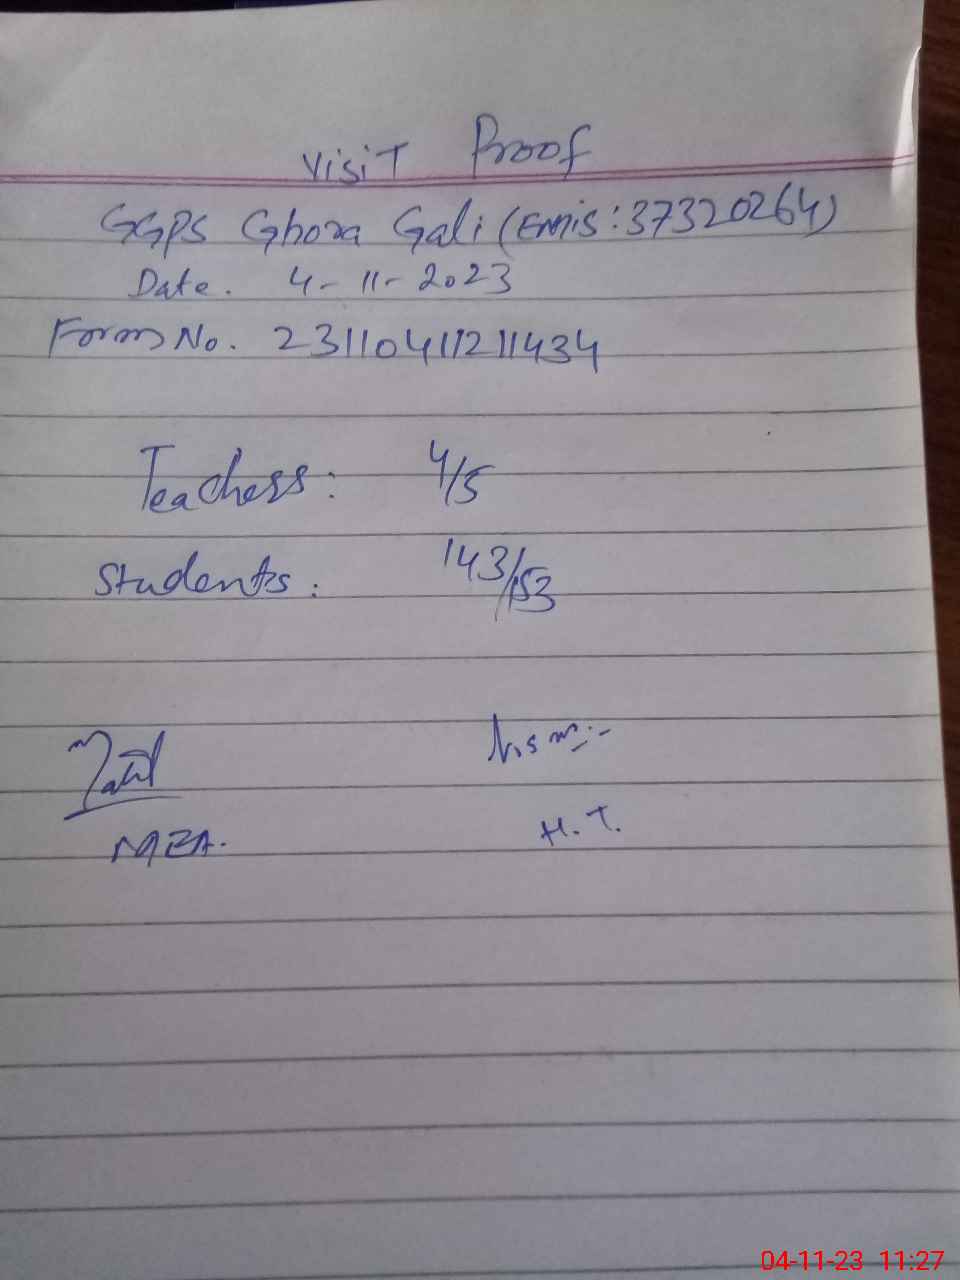 Visit Proof
GGPS Ghora Gali (Emis: 37320264)
Date. 4-11-2023
Form No. 23110411211434
Teachers: 4/5
Students: 143/153
MEA. H.T.
04-11-23 11:27